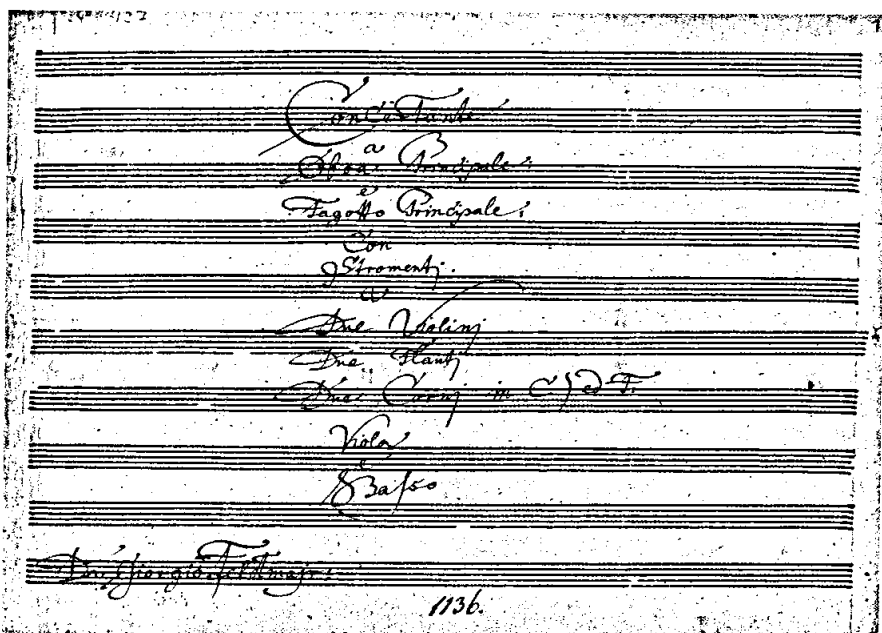 Concertante
a
Oboe Principale:
e
Fagotto Principale:
Con
Stromentj.
a
Due Violinj
Due Flautj
Due Cornj in C ed F.
Viola
e
Basso
Del Giorgio Feldmajr:
1136.